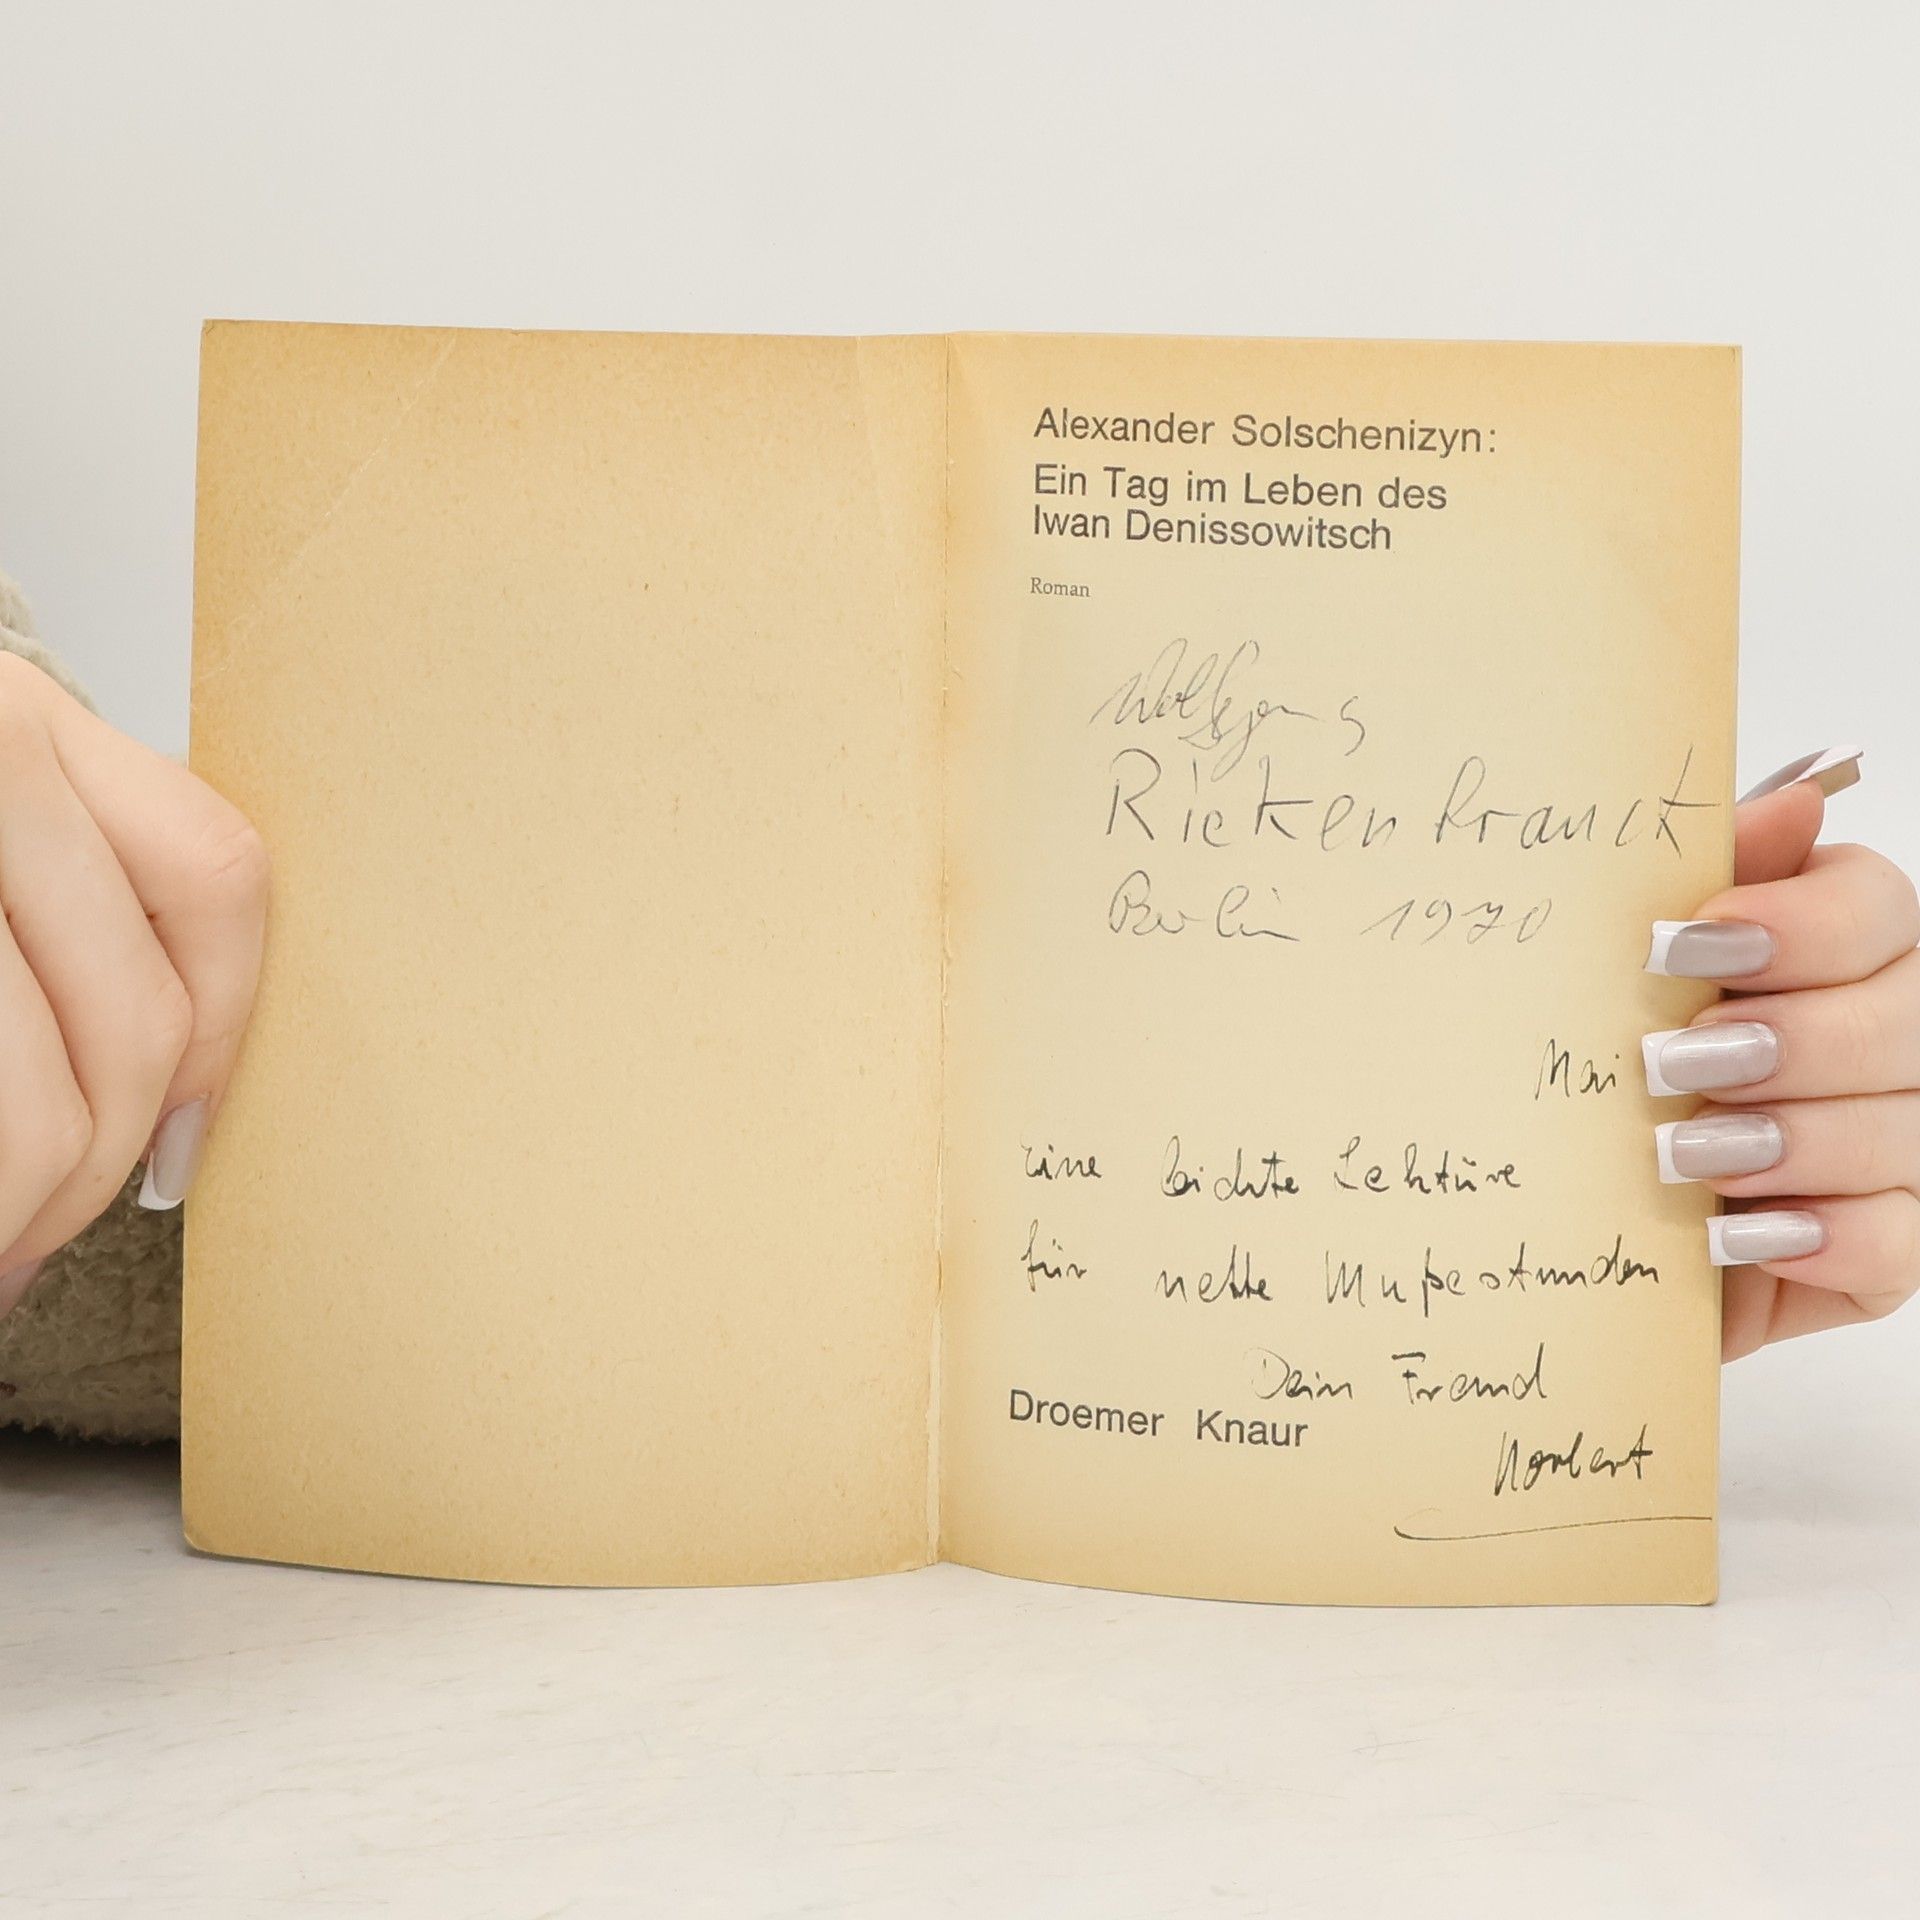 Alexander Solschenizyn:
Ein Tag im Leben des
Iwan Denissowitsch
Roman
Wolfgang
Berlin 1970
Mai
Eine leichte Lektüre
für nette Mußestunden
Dein Freund
Droemer Knaur
Norbert